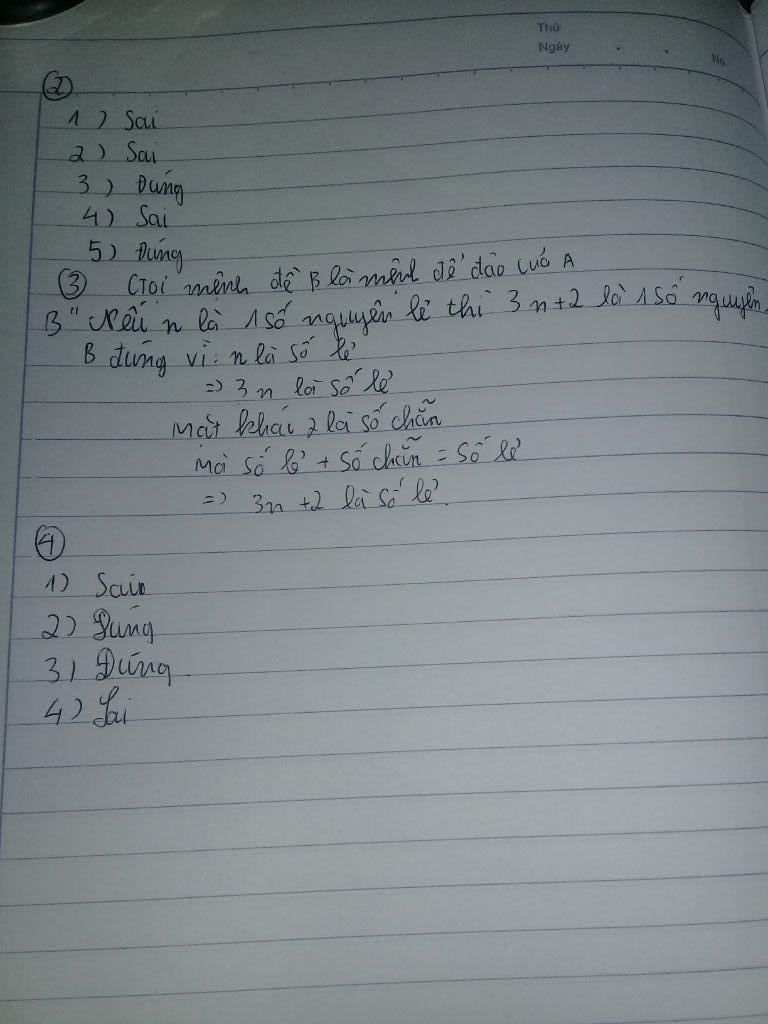 Thứ
Ngày . .
No.
②
1) Sai
2) Sai
3) Đúng
4) Sai
5) Đúng
③ Gọi mệnh đề B là mệnh đề đảo của A
B " Nếu n là 1 số nguyên lẻ thì 3n+2 là 1 số nguyên
B đúng vì: n là số lẻ
=> 3n là số lẻ
Mặt khác 2 là số chẵn
Mà số lẻ + số chẵn = số lẻ
=> 3n +2 là số lẻ.
④
1) Sai
2) Đúng
3) Đúng
4) Sai